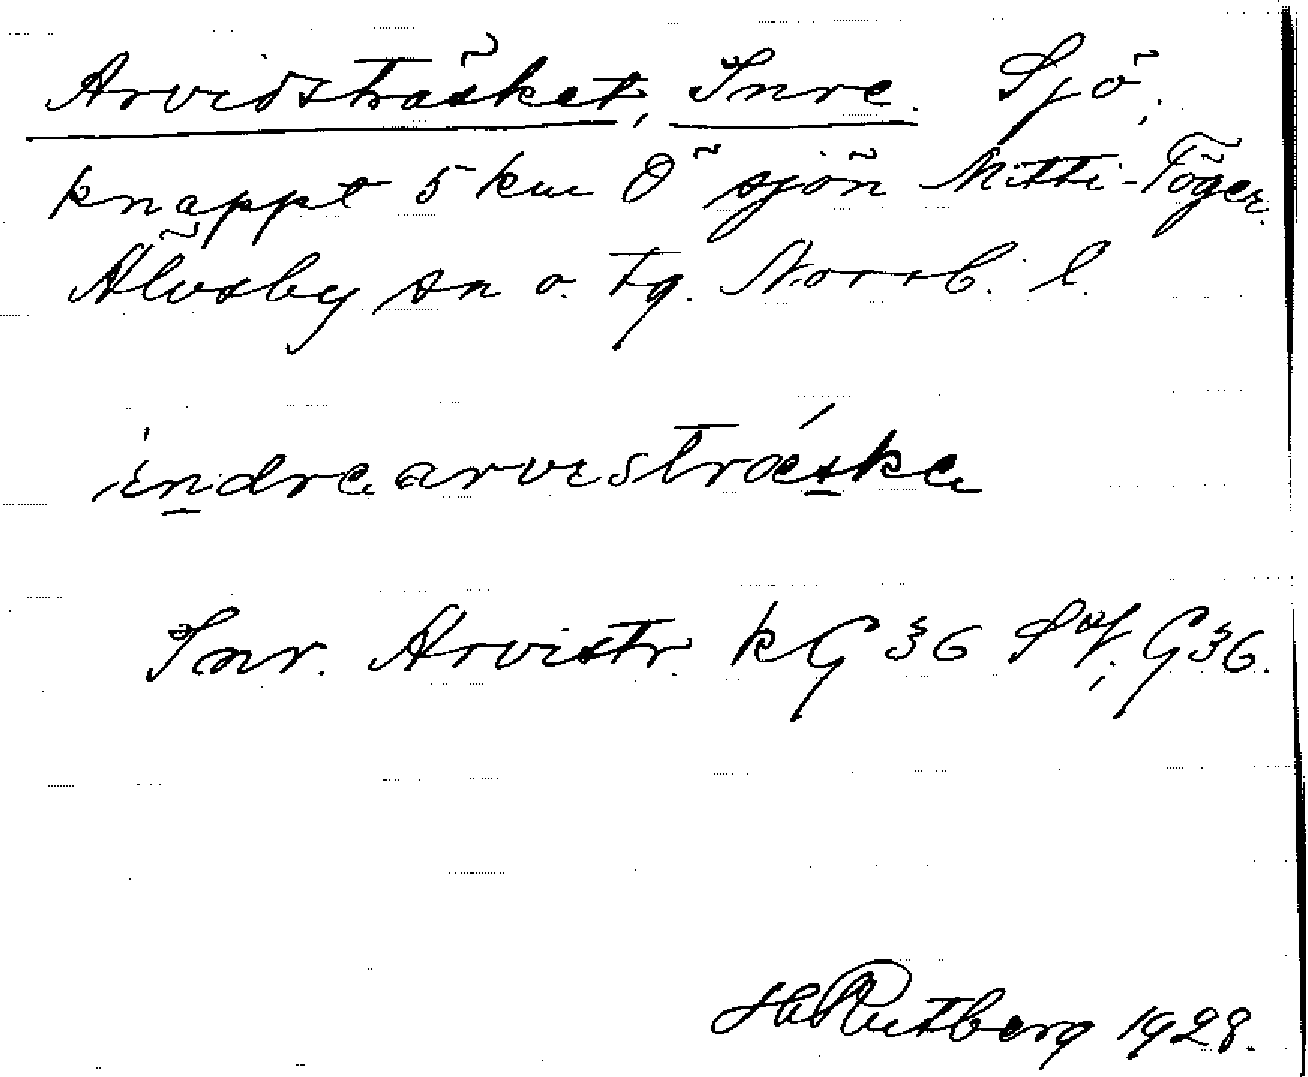 Arvidsträsket, Inre. Sjö,
knappt 5 km Ö sjön Mitti-Töger.
Älvsby sn o. tg. Norrb. l.
indre arvesträske
Inr. Arvistr. kG 36 G 36.
H Rutberg 1928.